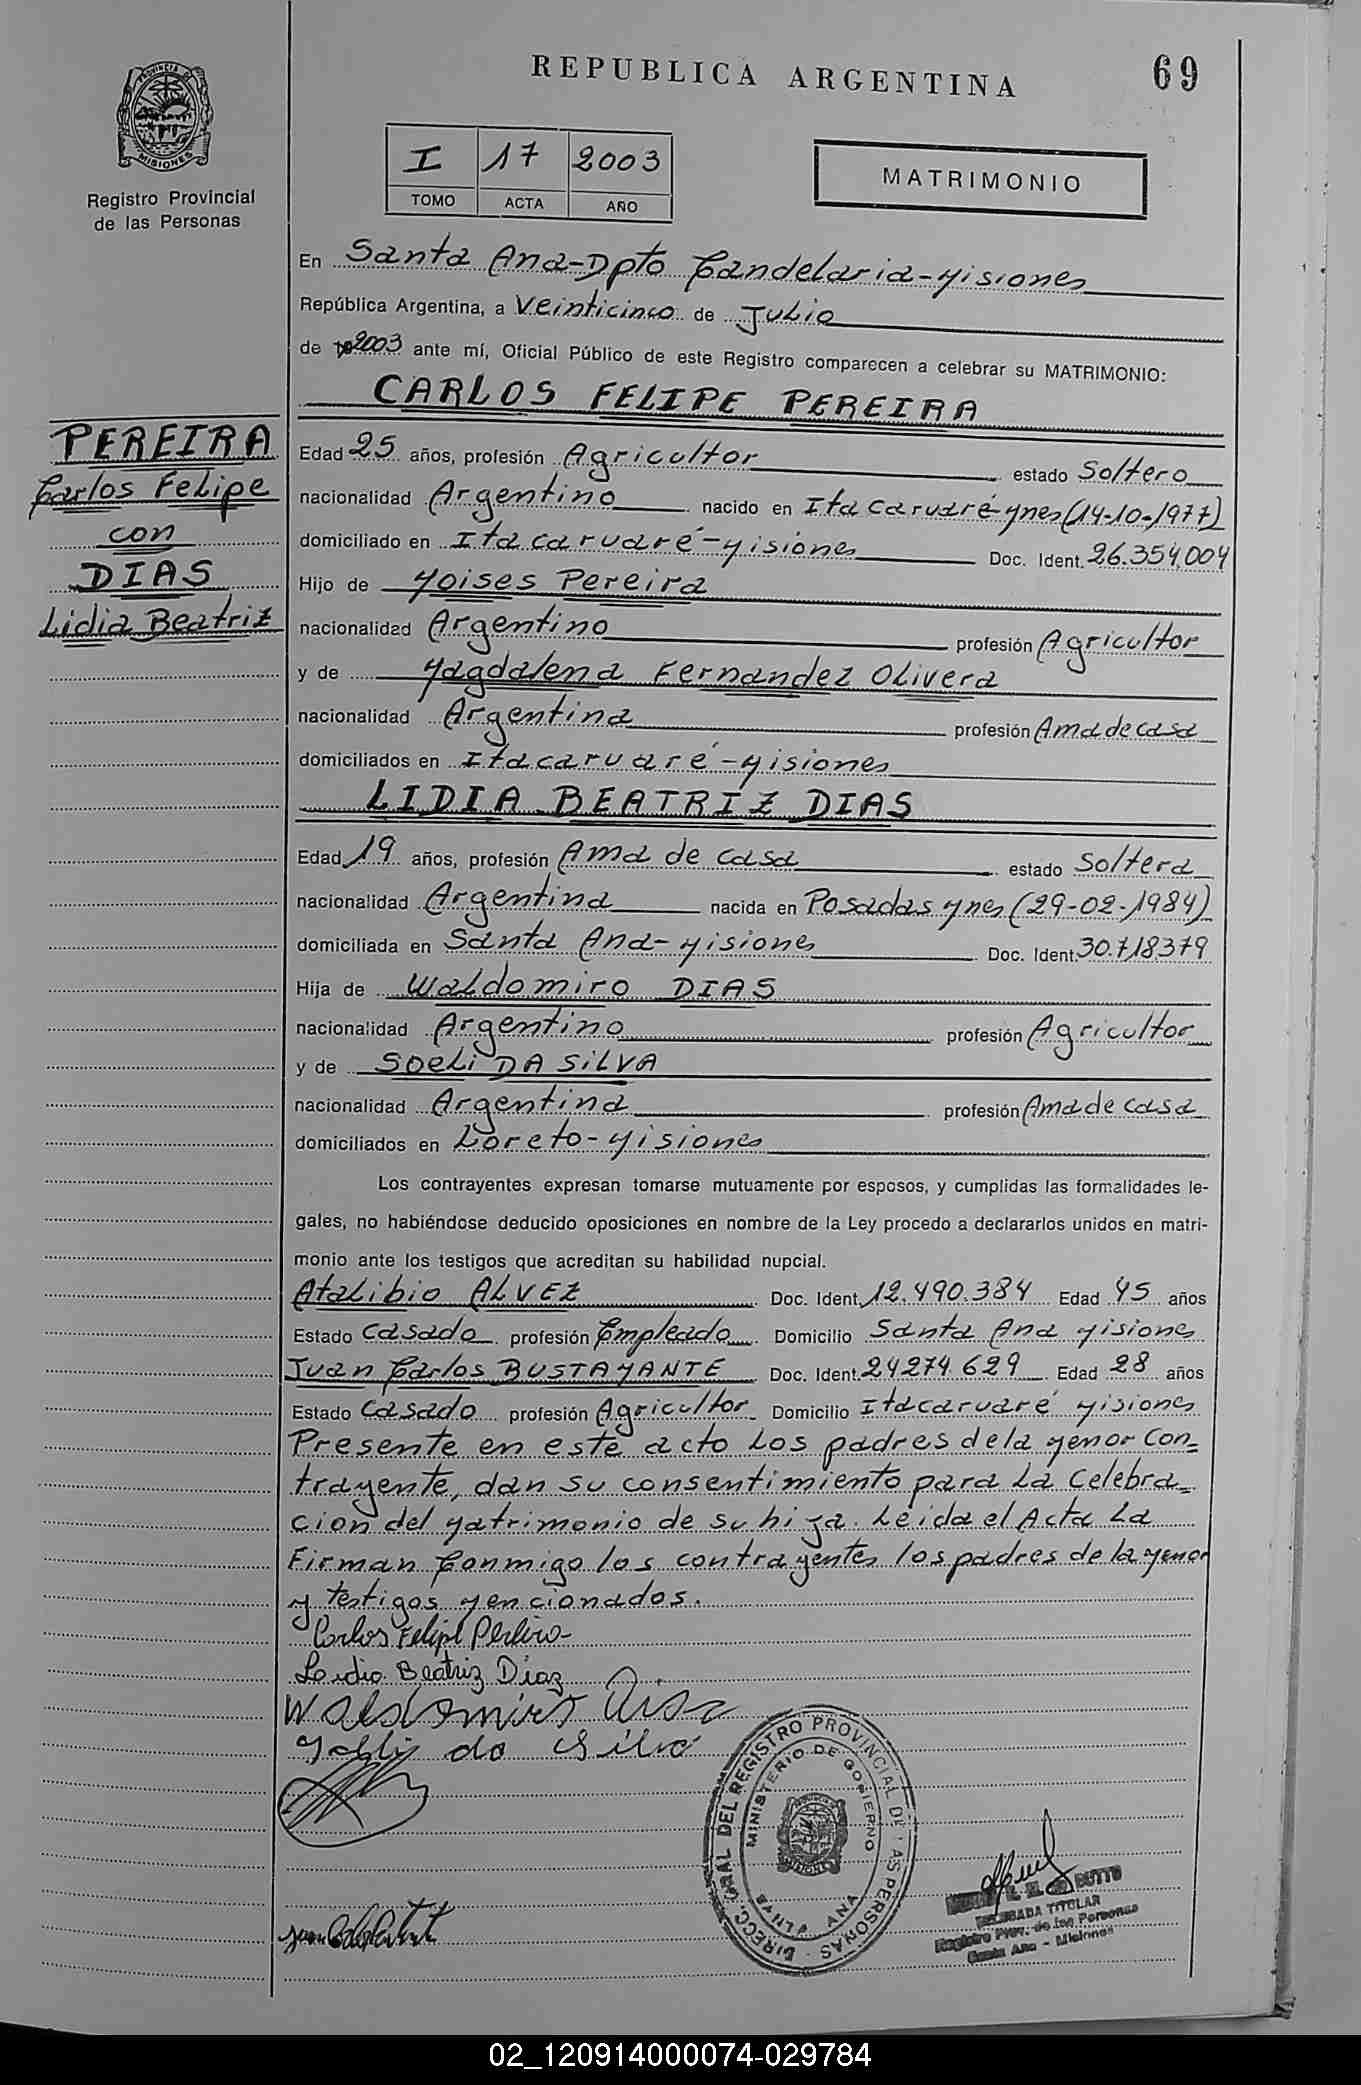 REPUBLICA ARGENTINA
69
PROVINCIA DE
MISIONES
Registro Provincial
de las Personas
I 17 2003
TOMO ACTA AÑO
MATRIMONIO
En Santa Ana-Dpto Candelaria-Misiones
República Argentina, a Veinticinco de Julio
de 2003 ante mí, Oficial Público de este Registro comparecen a celebrar su MATRIMONIO:
CARLOS FELIPE PEREIRA
PEREIRA
Carlos Felipe
con
DIAS
Lidia Beatriz
Edad 25 años, profesión Agricultor estado Soltero
nacionalidad Argentino nacido en Itacaruaré Mnes (14-10-1977)
domiciliado en Itacaruaré-Misiones Doc. Ident. 26.354.004
Hijo de Moises Pereira
nacionalidad Argentino profesión Agricultor
y de Magdalena Fernandez Olivera
nacionalidad Argentina profesión Ama de casa
domiciliados en Itacaruaré-Misiones
LIDIA BEATRIZ DIAS
Edad 19 años, profesión Ama de casa estado Soltera
nacionalidad Argentina nacida en Posadas Mnes (29-02-1984)
domiciliada en Santa Ana-Misiones Doc. Ident. 30.718379
Hija de Waldomiro DIAS
nacionalidad Argentino profesión Agricultor
y de Soeli DA SiLVA
nacionalidad Argentina profesión Ama de casa
domiciliados en Loreto-Misiones
Los contrayentes expresan tomarse mutuamente por esposos, y cumplidas las formalidades le-
gales, no habiéndose deducido oposiciones en nombre de la Ley procedo a declararlos unidos en matri-
monio ante los testigos que acreditan su habilidad nupcial.
Atalibio ALVEZ Doc. Ident. 12.490.384 Edad 45 años
Estado Casado profesión Empleado Domicilio Santa Ana Misiones
Juan Carlos BUSTAMANTE Doc. Ident. 24274.629 Edad 28 años
Estado Casado profesión Agricultor Domicilio Itacaruaré Misiones
Presente en este acto Los padres de la Menor Con=
trayente, dan su consentimiento para La Celebra=
cion del Matrimonio de su hija. Leida el Acta La
Firman Conmigo los contrayentes los padres de la Menor
y testigos Mencionados.
Carlos Felipe Pereira
Lidia Beatriz Diaz
Waldomiro Dias
da Silva
DIRECC. GRAL DEL REGISTRO PROVINCIAL DE LAS PERSONAS
MINISTERIO DE GOBIERNO
SANTA ANA
DELEGADA TITULAR
Registro Prov. de las Personas
Santa Ana - Misiones
02_120914000074-029784